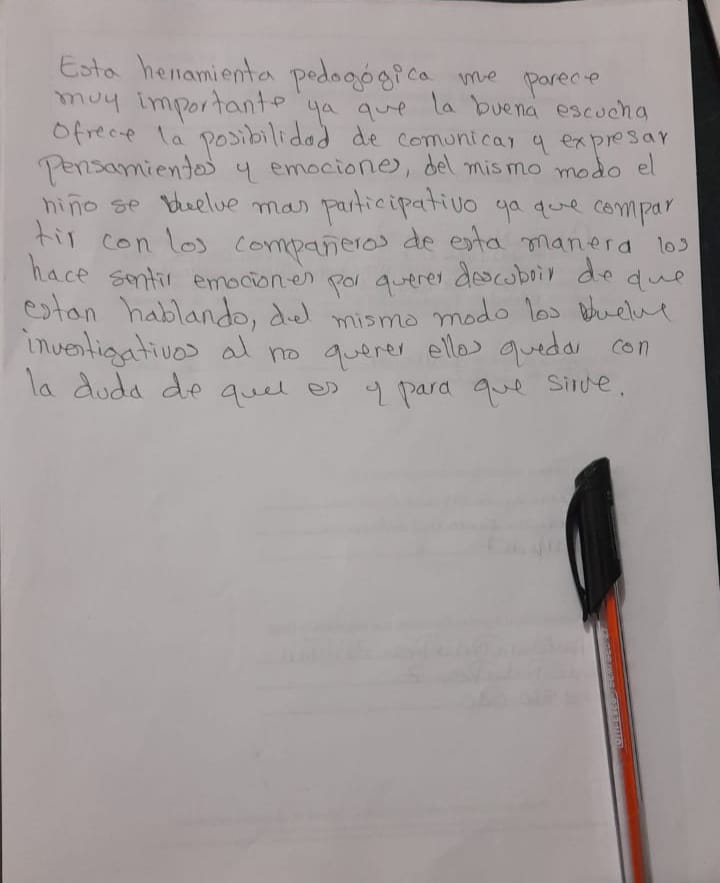 Esta herramienta pedogógica me parece
muy importante ya que la buena escucha
ofrece la posibilidad de comunicar y expresar
Pensamientos y emociones, del mismo modo el
niño se vuelve mas participativo ya que compar
tir con los compañeros de esta manera los
hace sentir emociones por querer descubrir de que
estan hablando, del mismo modo los vuelve
investigativos al no querer ellos quedar con
la duda de que es y para que sirve.